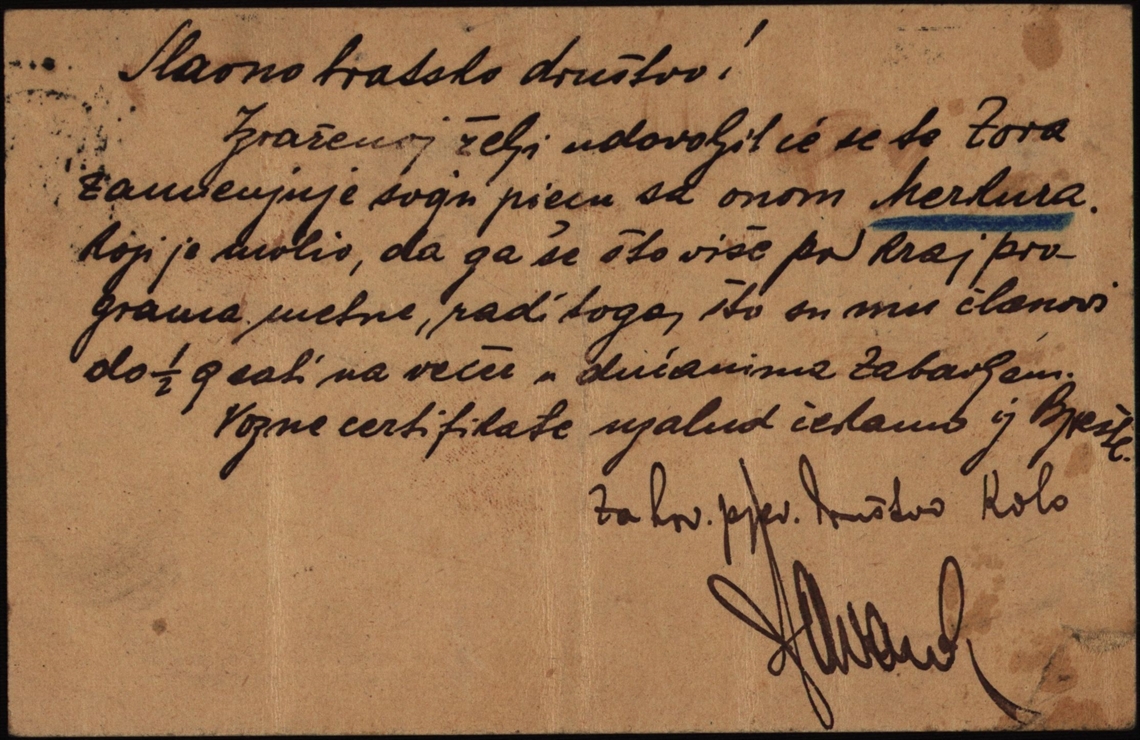 Slavno bratsko društvo!
Izraženoj želji udovoljit će se te Zora
zamenjuje svoju piecu sa onom Merkura.
koji je molio, da ga se što više pod kraj pro-
grama metne, radi toga, što su mu članovi
do ½ 9 sati na veče u dućanima zabavljeni.
Vozne certifikate uzalud čekamo iz
Za hrv. pjev. društvo Kolo